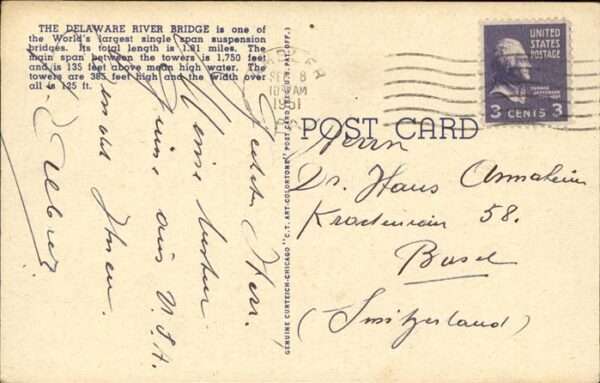 THE DELAWARE RIVER BRIDGE is one of
the World's largest single span suspension
bridges. Its total length is 1.81 miles. The
main span between the towers is 1,750 feet
and is 135 feet above mean high water. The
towers are 385 feet high and the width over
all is 125 ft.
Herr.
Meine besten
Grüsse aus U.S.A.
sendet Ihnen
GENUINE CURTEICH-CHICAGO "C.T. ART-COLORTONE" POST CARD (REG. U.S. PAT. OFF.)
SEP 8
AM
1951
UNITED
STATES
POSTAGE
THOMAS JEFFERSON
3 CENTS 3
POST CARD
Herrn
Dr. Hans Annaheim
58.
Basel
(Switzerland)